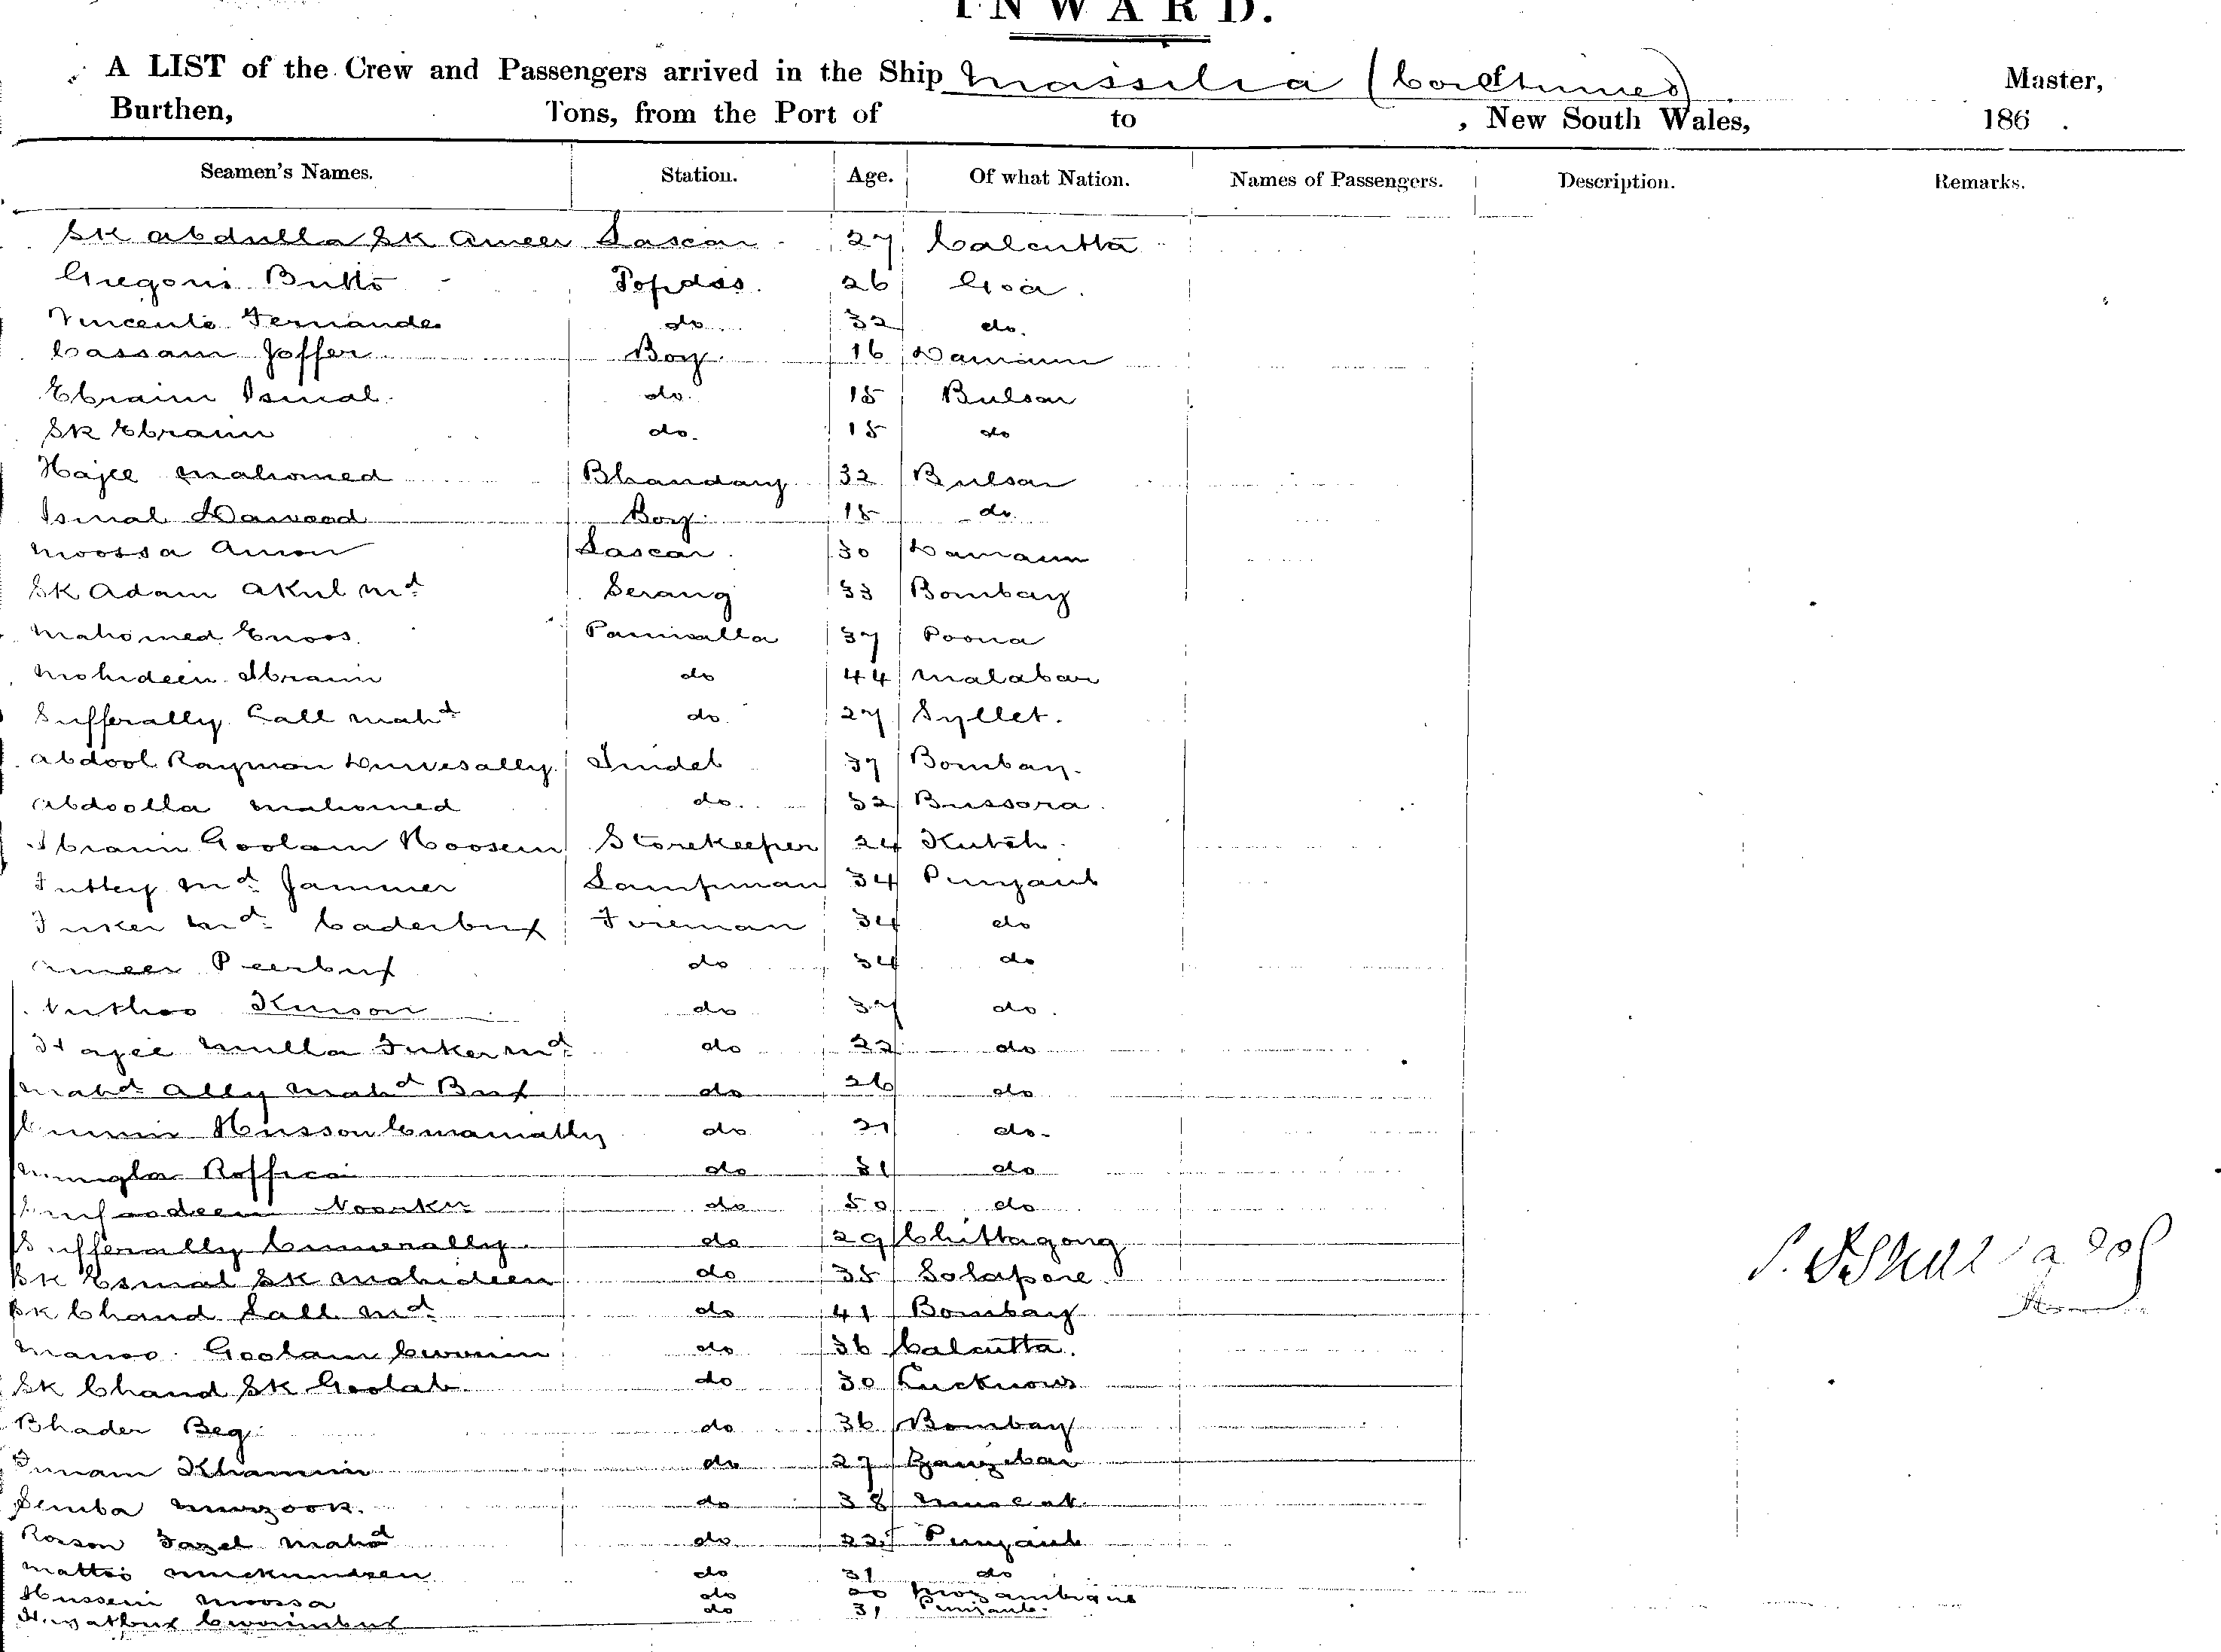 INWARD.
A LIST of the Crew and Passengers arrived in the Ship Massilia (Continued) of Master,
Burthen, Tons, from the Port of to , New South Wales, 186 .
Seamen's Names. Station. Age. Of what Nation. Names of Passengers. Description. Remarks.
Sk Abdulla Sk Ameer Lascar 27 Calcutta
Gregorio Butto Topdas 26 Goa
Vincente Fernandes do 32 do
Cassam Joffer Boy 16 Damaun
Ebraim Ismal do 15 Bulsar
Sk Ebraim do 15 do
Hajee Mahomed Bhandary 32 Bulsar
Ismal Dawood Boy 15 do
Moossa Amon Lascar 30 Damaun
Sk Adam Akul Md Serang 33 Bombay
Mahomed Enoos Paniwalla 37 Poona
Mohideen Ibraim do 44 Malabar
Sufferally Call Mahd do 27 Syllet.
Abdool Rayman Tindel 37 Bombay
Abdoolla Mahomed do 32 Bussora
Ibraim Goolam Hoosein Storekeeper 24 Kutch
Futtey Md Jammer Lampman 34 Punjaub
Fuker Md Caderbux Fireman 34 do
Ameer Peerbux do 34 do
Nuthoo do do
Hajee Mulla Fuker Md do 22 do
Mahd Ally Mahd Bux do 26 do
Husson Emamally do 21 do
Roffica do 31 do
do 50 do
Sufferally Cumerally do 29 Chittagong
Sk Esmal Sk Mohideen do 35 Solapore
Sk Chand Lall Md do 41 Bombay
Goolam do 36 Calcutta
Sk Chand Sk Goolab do 30 Lucknow
Bhader Beg do 36 Bombay
Khamis do 27 Zanzibar
Murzook do 38 Muscat
Rosson Fazel Mahd do 22 Punjaub
do 31 do
Hussein Moossa do Mozambique
do 31 Punjaub